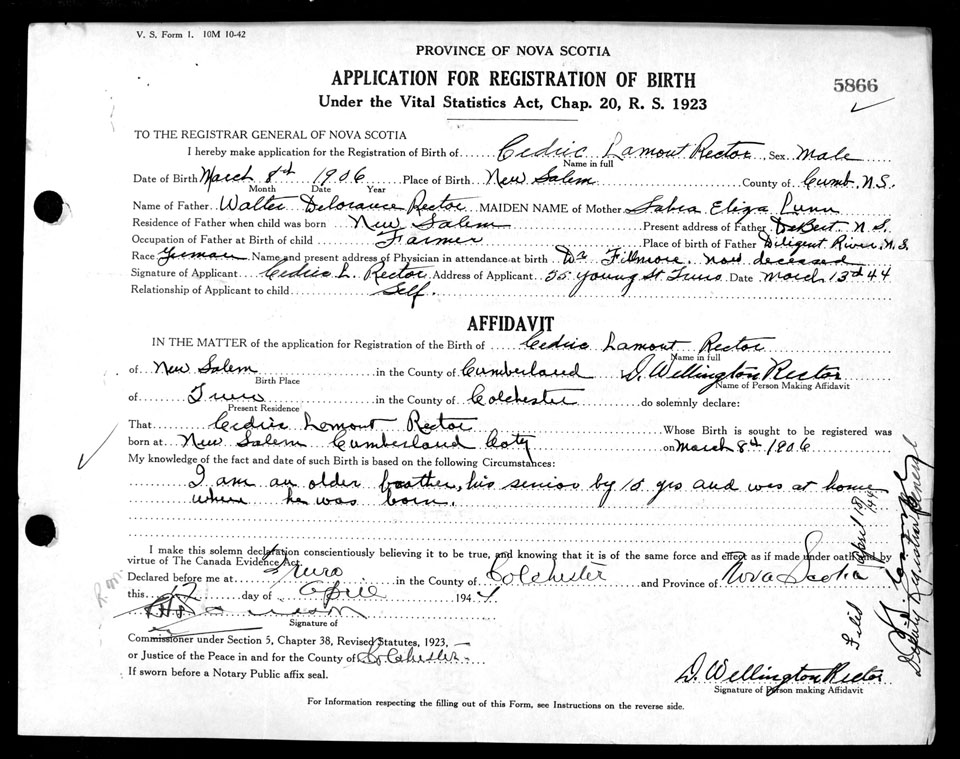 V. S. Form 1. 10M 10-42
PROVINCE OF NOVA SCOTIA
APPLICATION FOR REGISTRATION OF BIRTH
5866
Under the Vital Statistics Act, Chap. 20, R. S. 1923
TO THE REGISTRAR GENERAL OF NOVA SCOTIA
I hereby make application for the Registration of Birth of Cedric Lamont Rector Sex Male
Name in full
Date of Birth March 8th 1906 Place of Birth New Salem County of Cumb. N.S.
Month Date Year
Name of Father Walter Delorance Rector MAIDEN NAME of Mother Sabra Eliza Lunn
Residence of Father when child was born New Salem Present address of Father DeBert N S.
Occupation of Father at Birth of child Farmer Place of Birth of Father Diligent River, N.S.
Race German Name and present address of Physician in attendance at birth Dr Fillmore. now deceased
Signature of Applicant Cedric L. Rector Address of Applicant 55 Young St. Truro Date March 13th 44
Relationship of Applicant to child Self.
AFFIDAVIT
IN THE MATTER of the application for Registration of the Birth of Cedric Lamont Rector
Name in full
of New Salem in the County of Cumberland D. Wellington Rector
Birth Place Name of Person Making Affidavit
of Truro in the County of Colchester do solemnly declare:
Present Residence
That Cedric Lamont Rector Whose Birth is sought to be registered was
born at New Salem Cumberland Coty on March 8th 1906
My knowledge of the fact and date of such Birth is based on the following Circumstances:
I am an older brother, his senior by 15 yrs and was at home
where he was born.
I make this solemn declaration conscientiously believing it to be true, and knowing that it is of the same force and effect as if made under oath and by
virtue of The Canada Evidence Act.
Declared before me at Truro in the County of Colchester and Province of Nova Scotia
this day of April 1944
Signature of
Commissioner under Section 5, Chapter 38, Revised Statutes, 1923,
or Justice of the Peace in and for the County of Colchester
If sworn before a Notary Public affix seal.
D. Wellington Rector
Signature of Person making Affidavit
For Information respecting the filling out of this Form, see Instructions on the reverse side.
Filed April 18/44
Deputy Registrar General